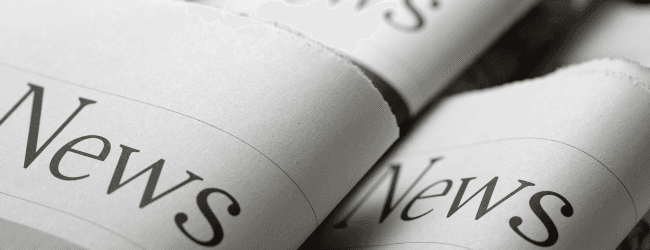 News
News